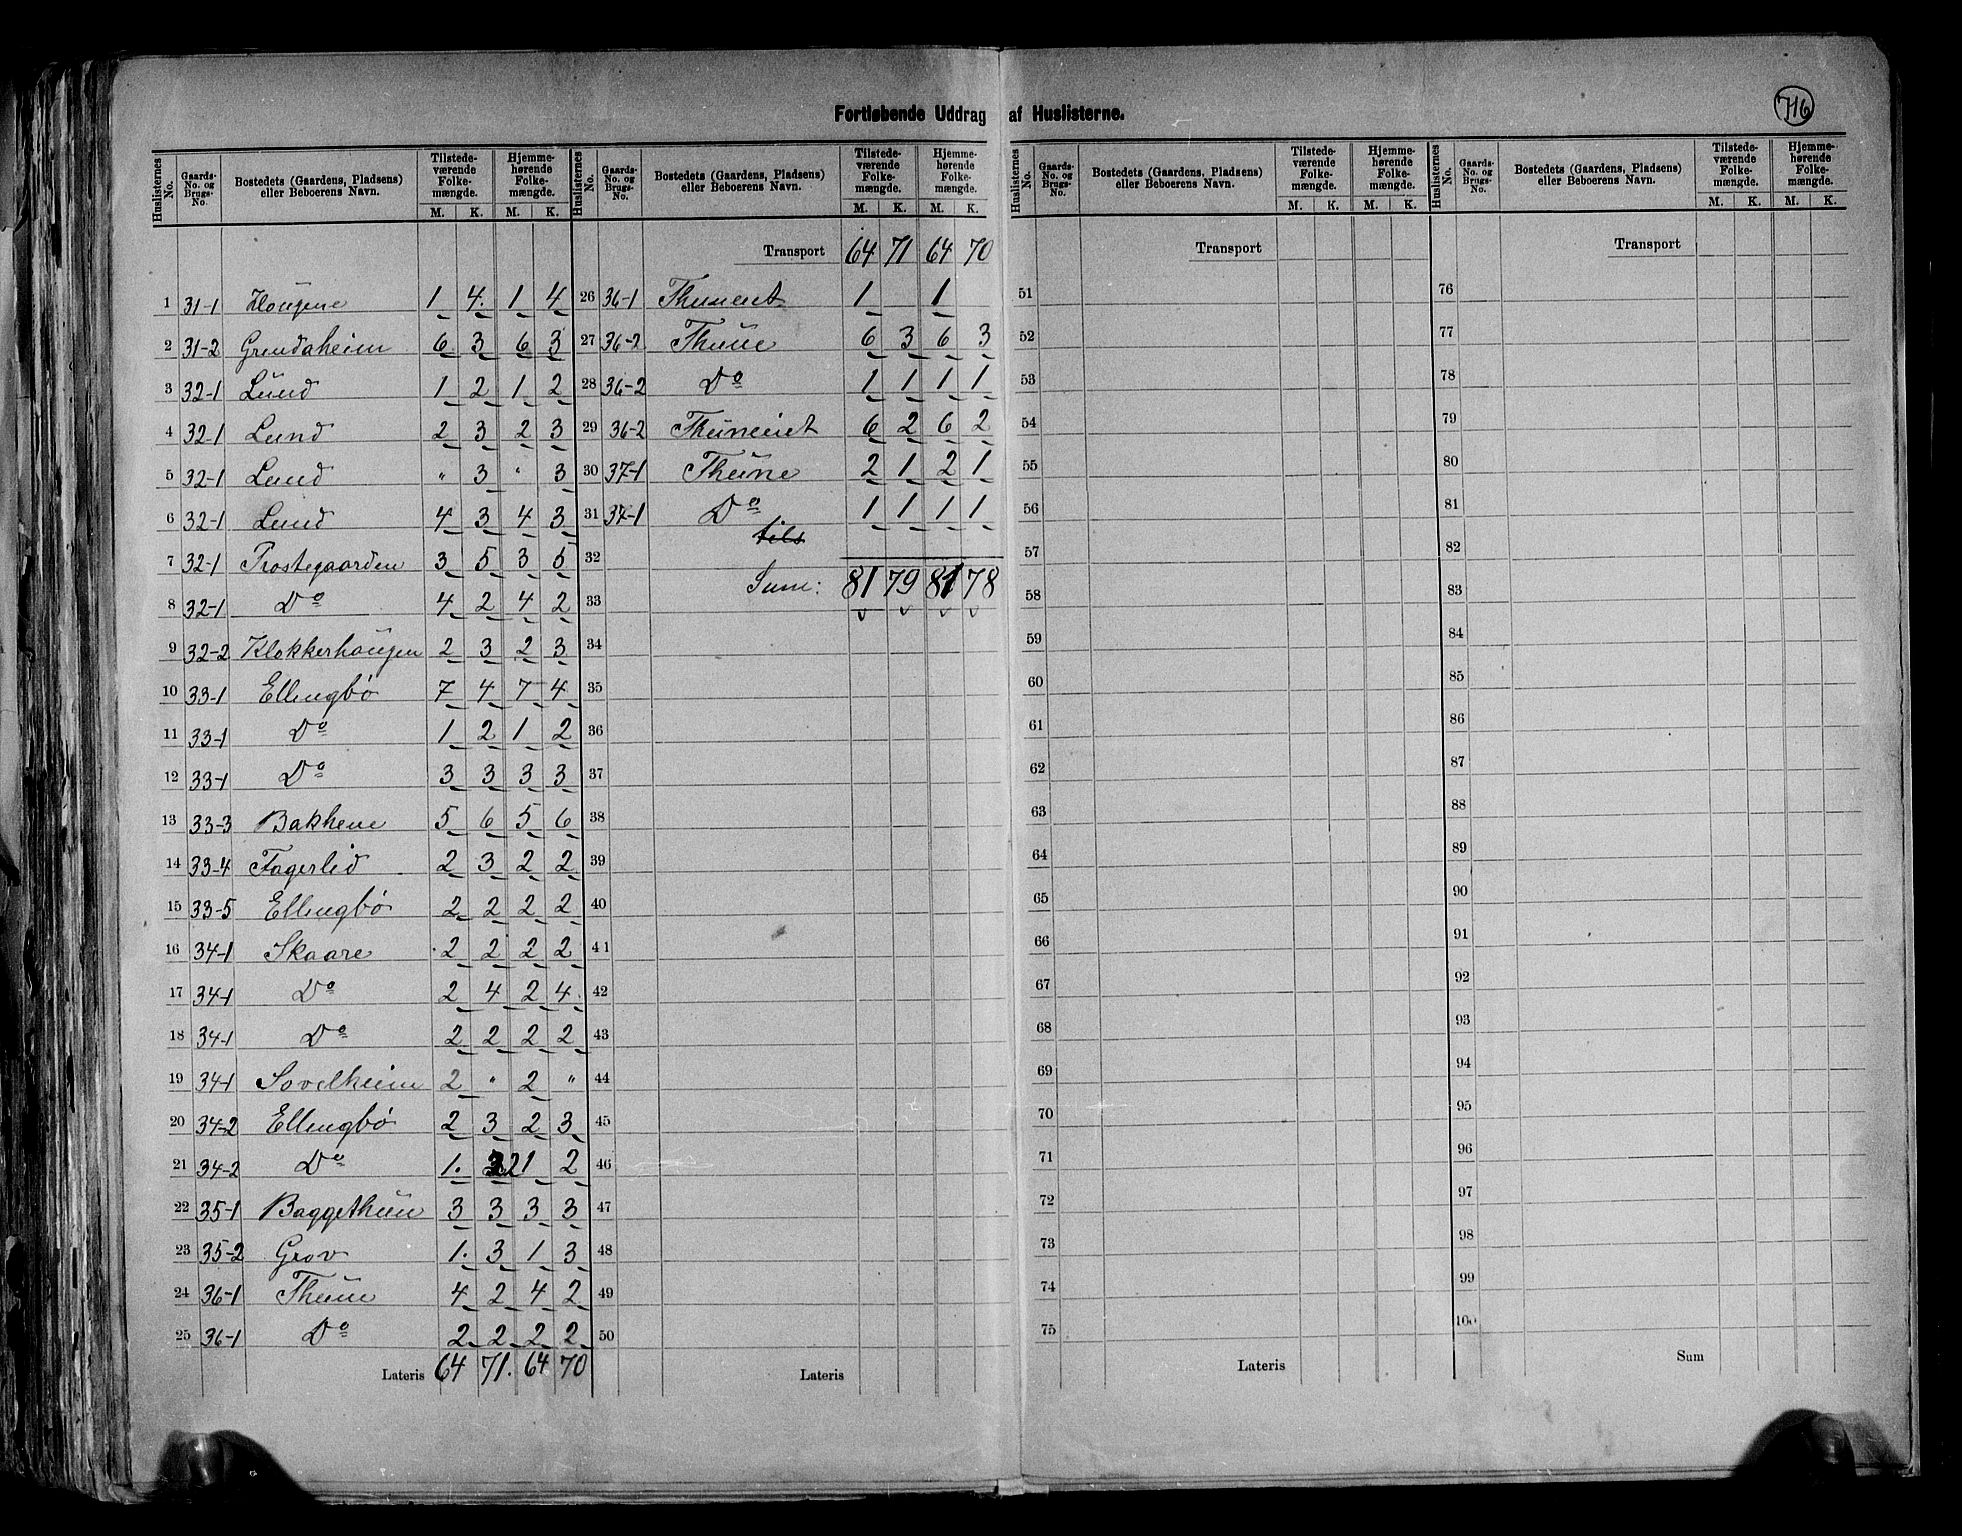 Fortløbende Uddrag af Huslisterne.
716
Huslisternes No. Gaards-No. og Brugs-No. Bostedets (Gaardens, Pladsens) eller Beboerens Navn. Tilstedeværende Folkemængde. M. K. Hjemmehørende Folkemængde. M. K.
1 31-1 Hougene 1 4. 1 4
2 31-2 Grindaheim 6 3 6 3
3 32-1 Lund 1 2 1 2
4 32-1 Lund 2 3 2 3
5 32-1 Lund " 3 " 3
6 32-1 Lund 4 3 4 3
7 32-1 Prostegaarden 3 5 3 5
8 32-1 Do 4 2 4 2
9 32-2 Klokkerhougen 2 3 2 3
10 33-1 Ellingbø 7 4 7 4
11 33-1 Do 1 2 1 2
12 33-1 Do 3 3 3 3
13 33-3 Bakkene 5 6 5 6
14 33-4 Fagerlid 2 3 2 2
15 33-5 Ellingbø 2 2 2 2
16 34-1 Skaare 2 2 2 2
17 34-1 Do 2 4 2 4
18 34-1 Do 2 2 2 2
19 34-1 2 " 2 "
20 34-2 Ellingbø 2 3 2 3
21 34-2 Do 1. 2 1 2
22 35-1 Baggethun 3 3 3 3
23 35-2 Grov 1. 3 1 3
24 36-1 Thune 4 2 4 2
25 36-1 Do 2 2 2 2
Lateris 64 71. 64 70
Huslisternes No. Gaards-No. og Brugs-No. Bostedets (Gaardens, Pladsens) eller Beboerens Navn. Tilstedeværende Folkemængde. M. K. Hjemmehørende Folkemængde. M. K.
Transport 64 71 64 70
26 36-1 Thuneiet 1 1
27 36-2 Thune 6 3 6 3
28 36-2 Do 1 1 1 1
29 36-2 Thuneiet 6 2 6 2
30 37-1 Thune 2 1 2 1
31 37-1 Do 1 1 1 1
tils
32
Sum: 81 79 81 78
33
34
35
36
37
38
39
40
41
42
43
44
45
46
47
48
49
50
Lateris
Huslisternes No. Gaards-No. og Brugs-No. Bostedets (Gaardens, Pladsens) eller Beboerens Navn. Tilstedeværende Folkemængde. M. K. Hjemmehørende Folkemængde. M. K.
Transport
51
52
53
54
55
56
57
58
59
60
61
62
63
64
65
66
67
68
69
70
71
72
73
74
75
Lateris
Huslisternes No. Gaards-No. og Brugs-No. Bostedets (Gaardens, Pladsens) eller Beboerens Navn. Tilstedeværende Folkemængde. M. K. Hjemmehørende Folkemængde. M. K.
Transport
76
77
78
79
80
81
82
83
84
85
86
87
88
89
90
91
92
93
94
95
96
97
98
99
100
Sum